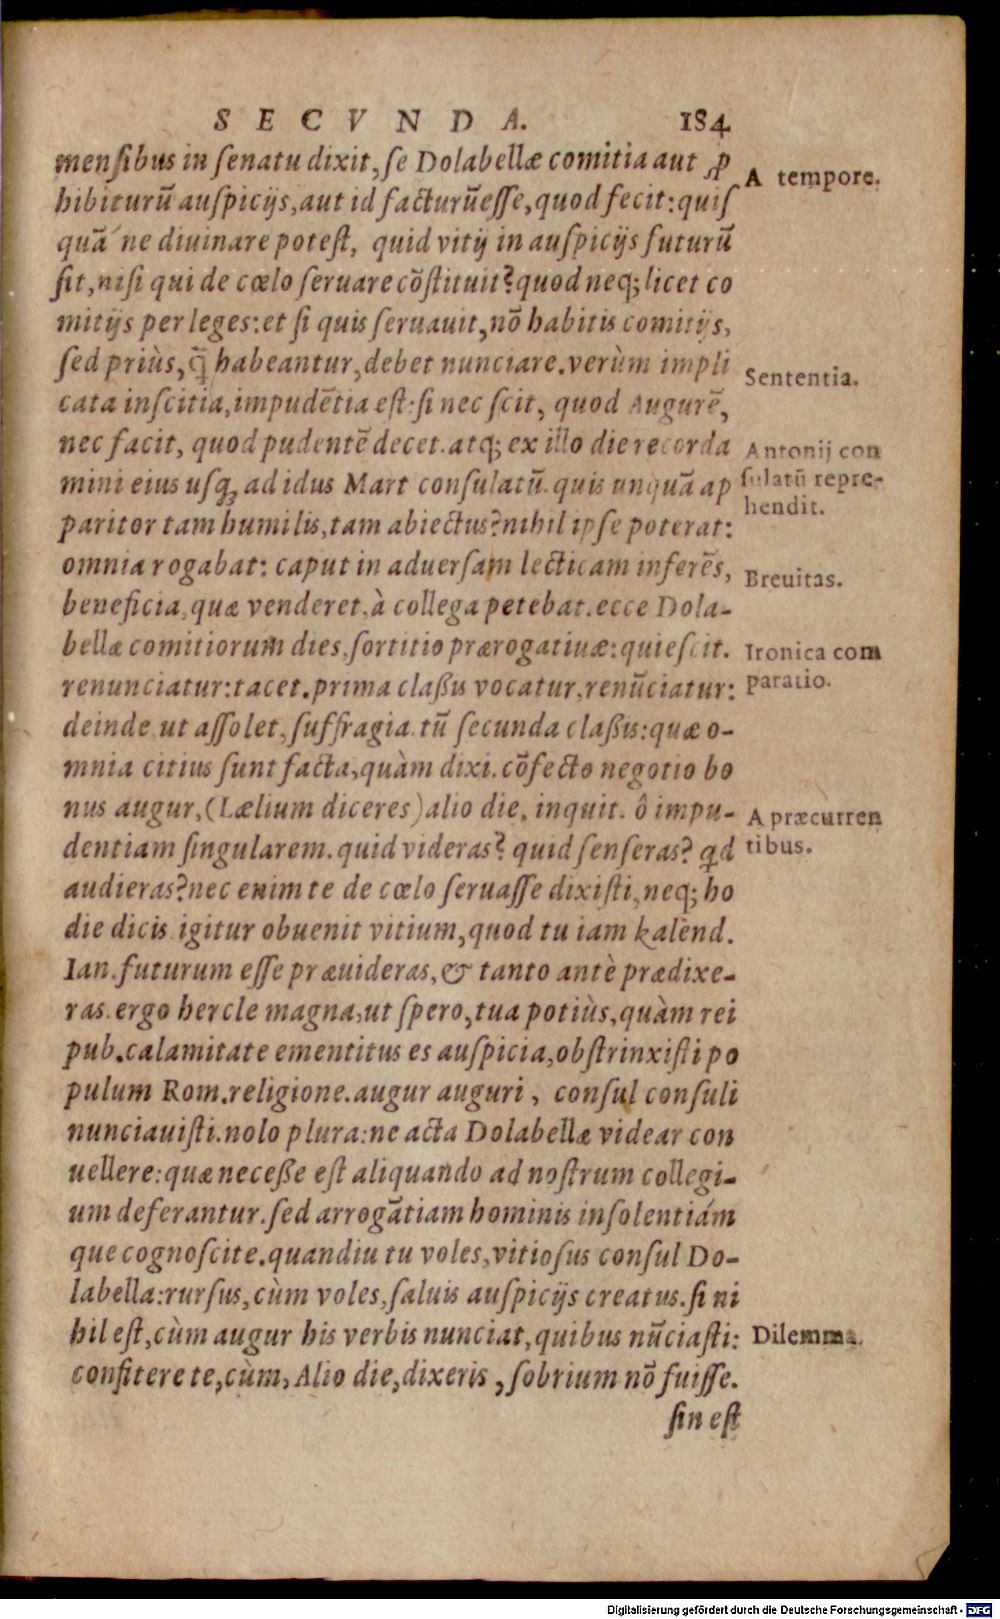 SECVNDA. 184
mensibus in senatu dixit, se Dolabellæ comitia aut ꝓ
hibiturū auspicijs, aut id facturū esse, quod fecit: quis
quā ne diuinare potest, quid vitij in auspicijs futurū
sit, nisi qui de cœlo seruare cōstituit? quod neq; licet co
mitijs per leges: et si quis seruauit, nō habitis comitijs,
sed priùs, q̄ habeantur, debet nunciare. verùm impli
cata inscitia, impudētia est: si nec scit, quod Augurē,
nec facit, quod pudentē decet. atq; ex illo die recorda
mini eius usq; ad idus Mart consulatū. quis unquā ap
paritor tam humilis, tam abiectus? nihil ipse poterat:
omnia rogabat: caput in aduersam lecticam inferēs,
beneficia, quæ venderet, à collega petebat. ecce Dola-
bellæ comitiorum dies, sortitio prærogatiuæ: quiescit.
renunciatur: tacet. prima claßis vocatur, renūciatur:
deinde ut assolet, suffragia. tū secunda claßis: quæ o-
mnia citius sunt facta, quàm dixi. cōfecto negotio bo
nus augur, (Lælium diceres) alio die, inquit. ô impu-
dentiam singularem. quid videras? quid senseras? qd
audieras? nec enim te de cœlo seruasse dixisti, neq; ho
die dicis igitur obuenit vitium, quod tu iam kalend.
Ian. futurum esse præuideras, & tanto antè prædixe-
ras. ergo hercle magna, ut spero, tua potiùs, quàm rei
pub. calamitate ementitus es auspicia, obstrinxisti po
pulum Rom. religione. augur auguri, consul consuli
nunciauisti. nolo plura: ne acta Dolabellæ videar con
uellere: quæ neceße est aliquando ad nostrum collegi-
um deferantur. sed arrogātiam hominis insolentiám
que cognoscite. quandiu tu voles, vitiosus consul Do-
labella: rursus, cùm voles, saluis auspicijs creatus. si ni
hil est, cùm augur his verbis nunciat, quibus nūciasti:
confitere te, cùm, Alio die, dixeris, sobrium nō fuisse.
sin est
A tempore.
Sententia.
Antonij con
sulatū repre-
hendit.
Breuitas.
Ironica com
paratio.
A præcurren
tibus.
Dilemma.
Digitalisierung gefördert durch die Deutsche Forschungsgemeinschaft - DFG